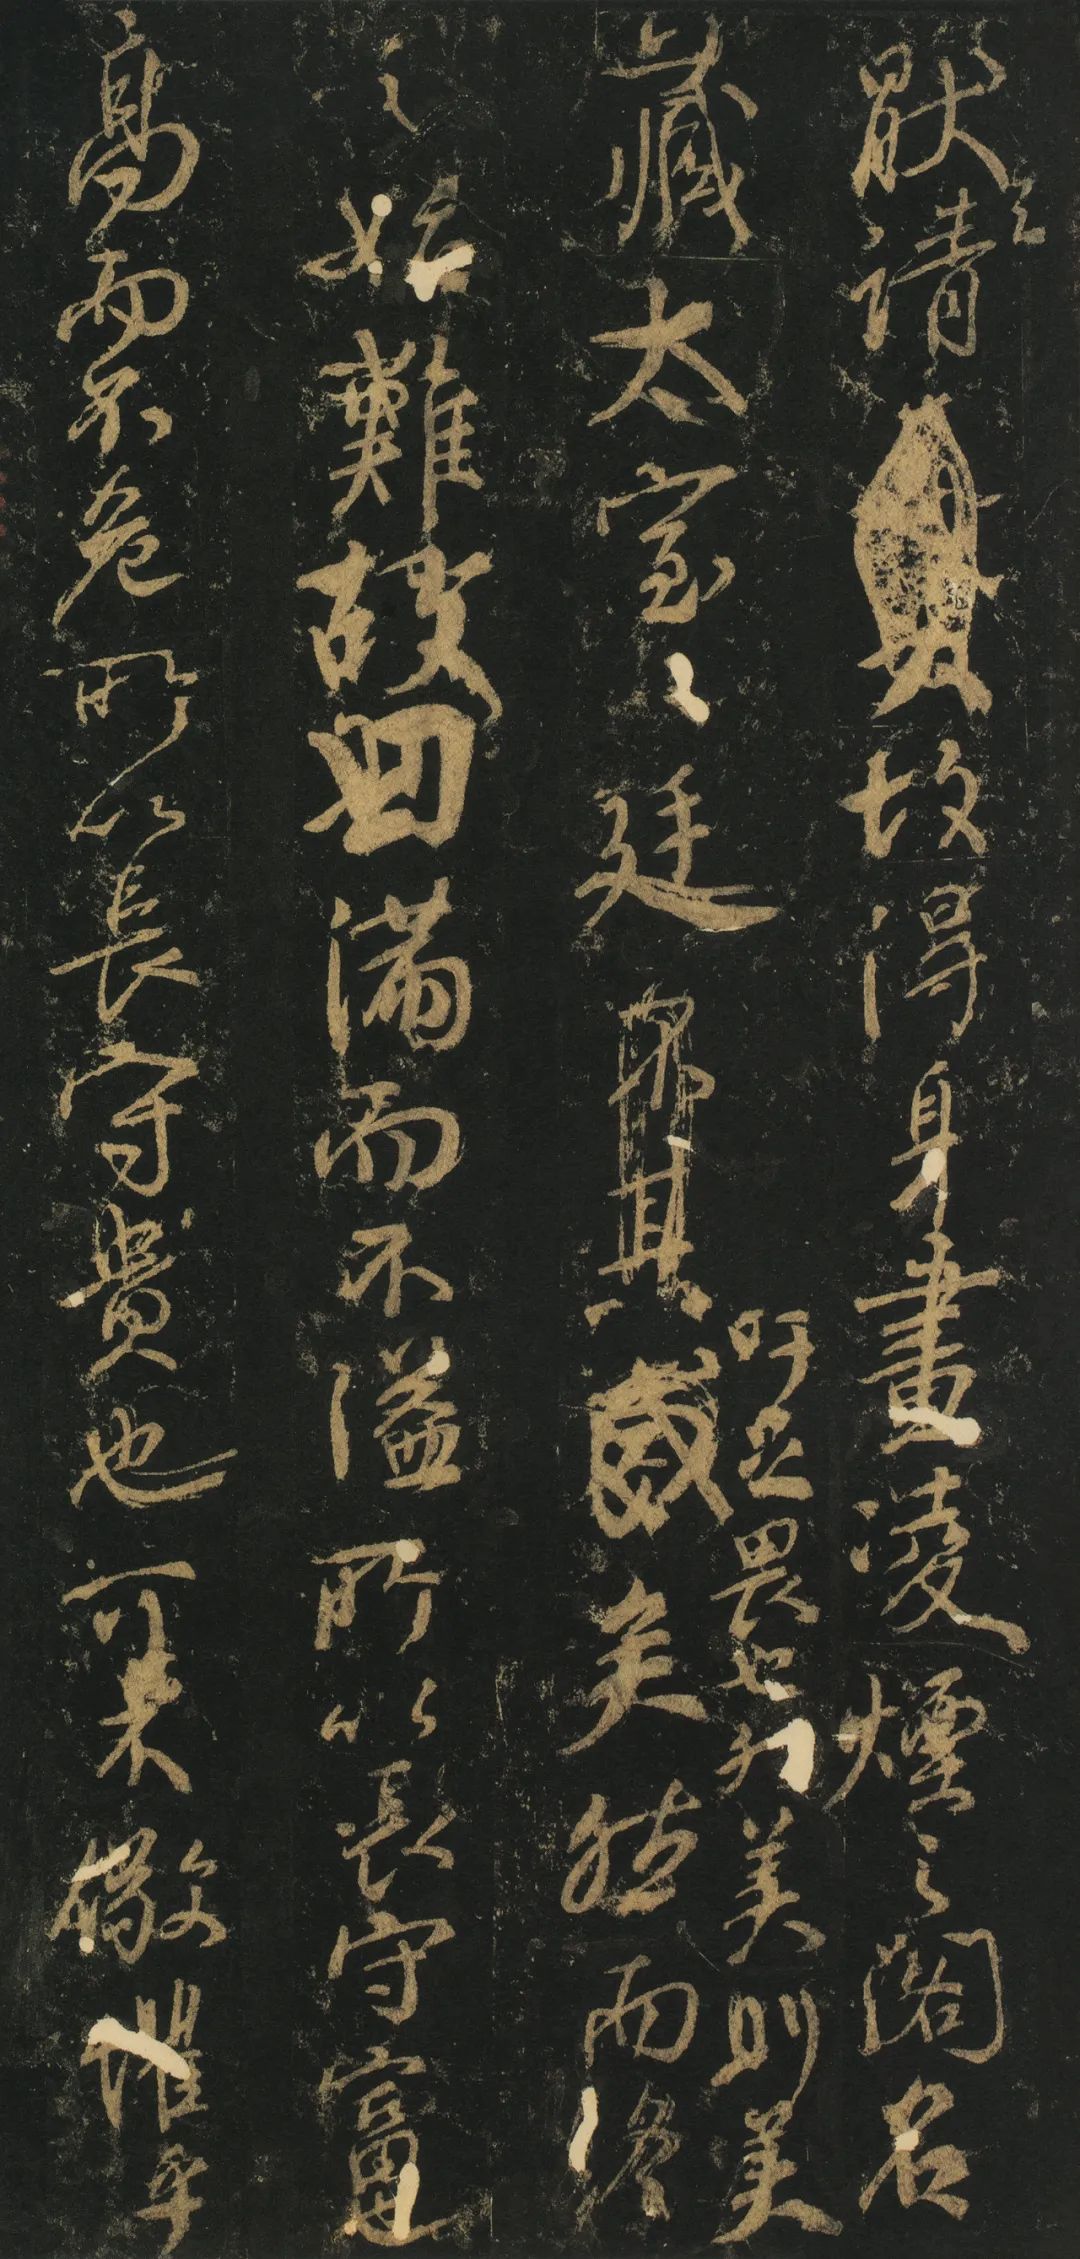 猒之請故得身畫凌煙之閣名
吁足畏也然美則美
藏太室之廷其盛矣然而終
之始難故曰滿而不溢所以長守富也
高而不危所以長守貴也可不儆懼乎